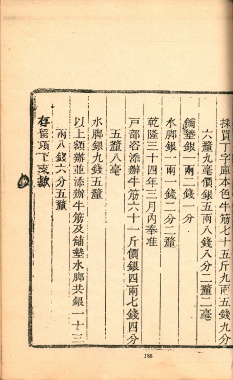 採買丁字庫本色牛筋七十五斤九兩五錢九分
六釐九毫價銀五兩八錢八分二釐二毫
鋪墊銀一兩二錢一分
水脚銀一兩一錢二分二釐
乾隆三十四年三月內奉准
戸部咨添辦牛筋六十一斤價銀四兩七錢四分
五釐八毫
水脚銀九錢五釐
以上額辦並添辦牛筋及鋪墊水脚共銀一十三
兩八錢六分五釐
存留項下支款
188